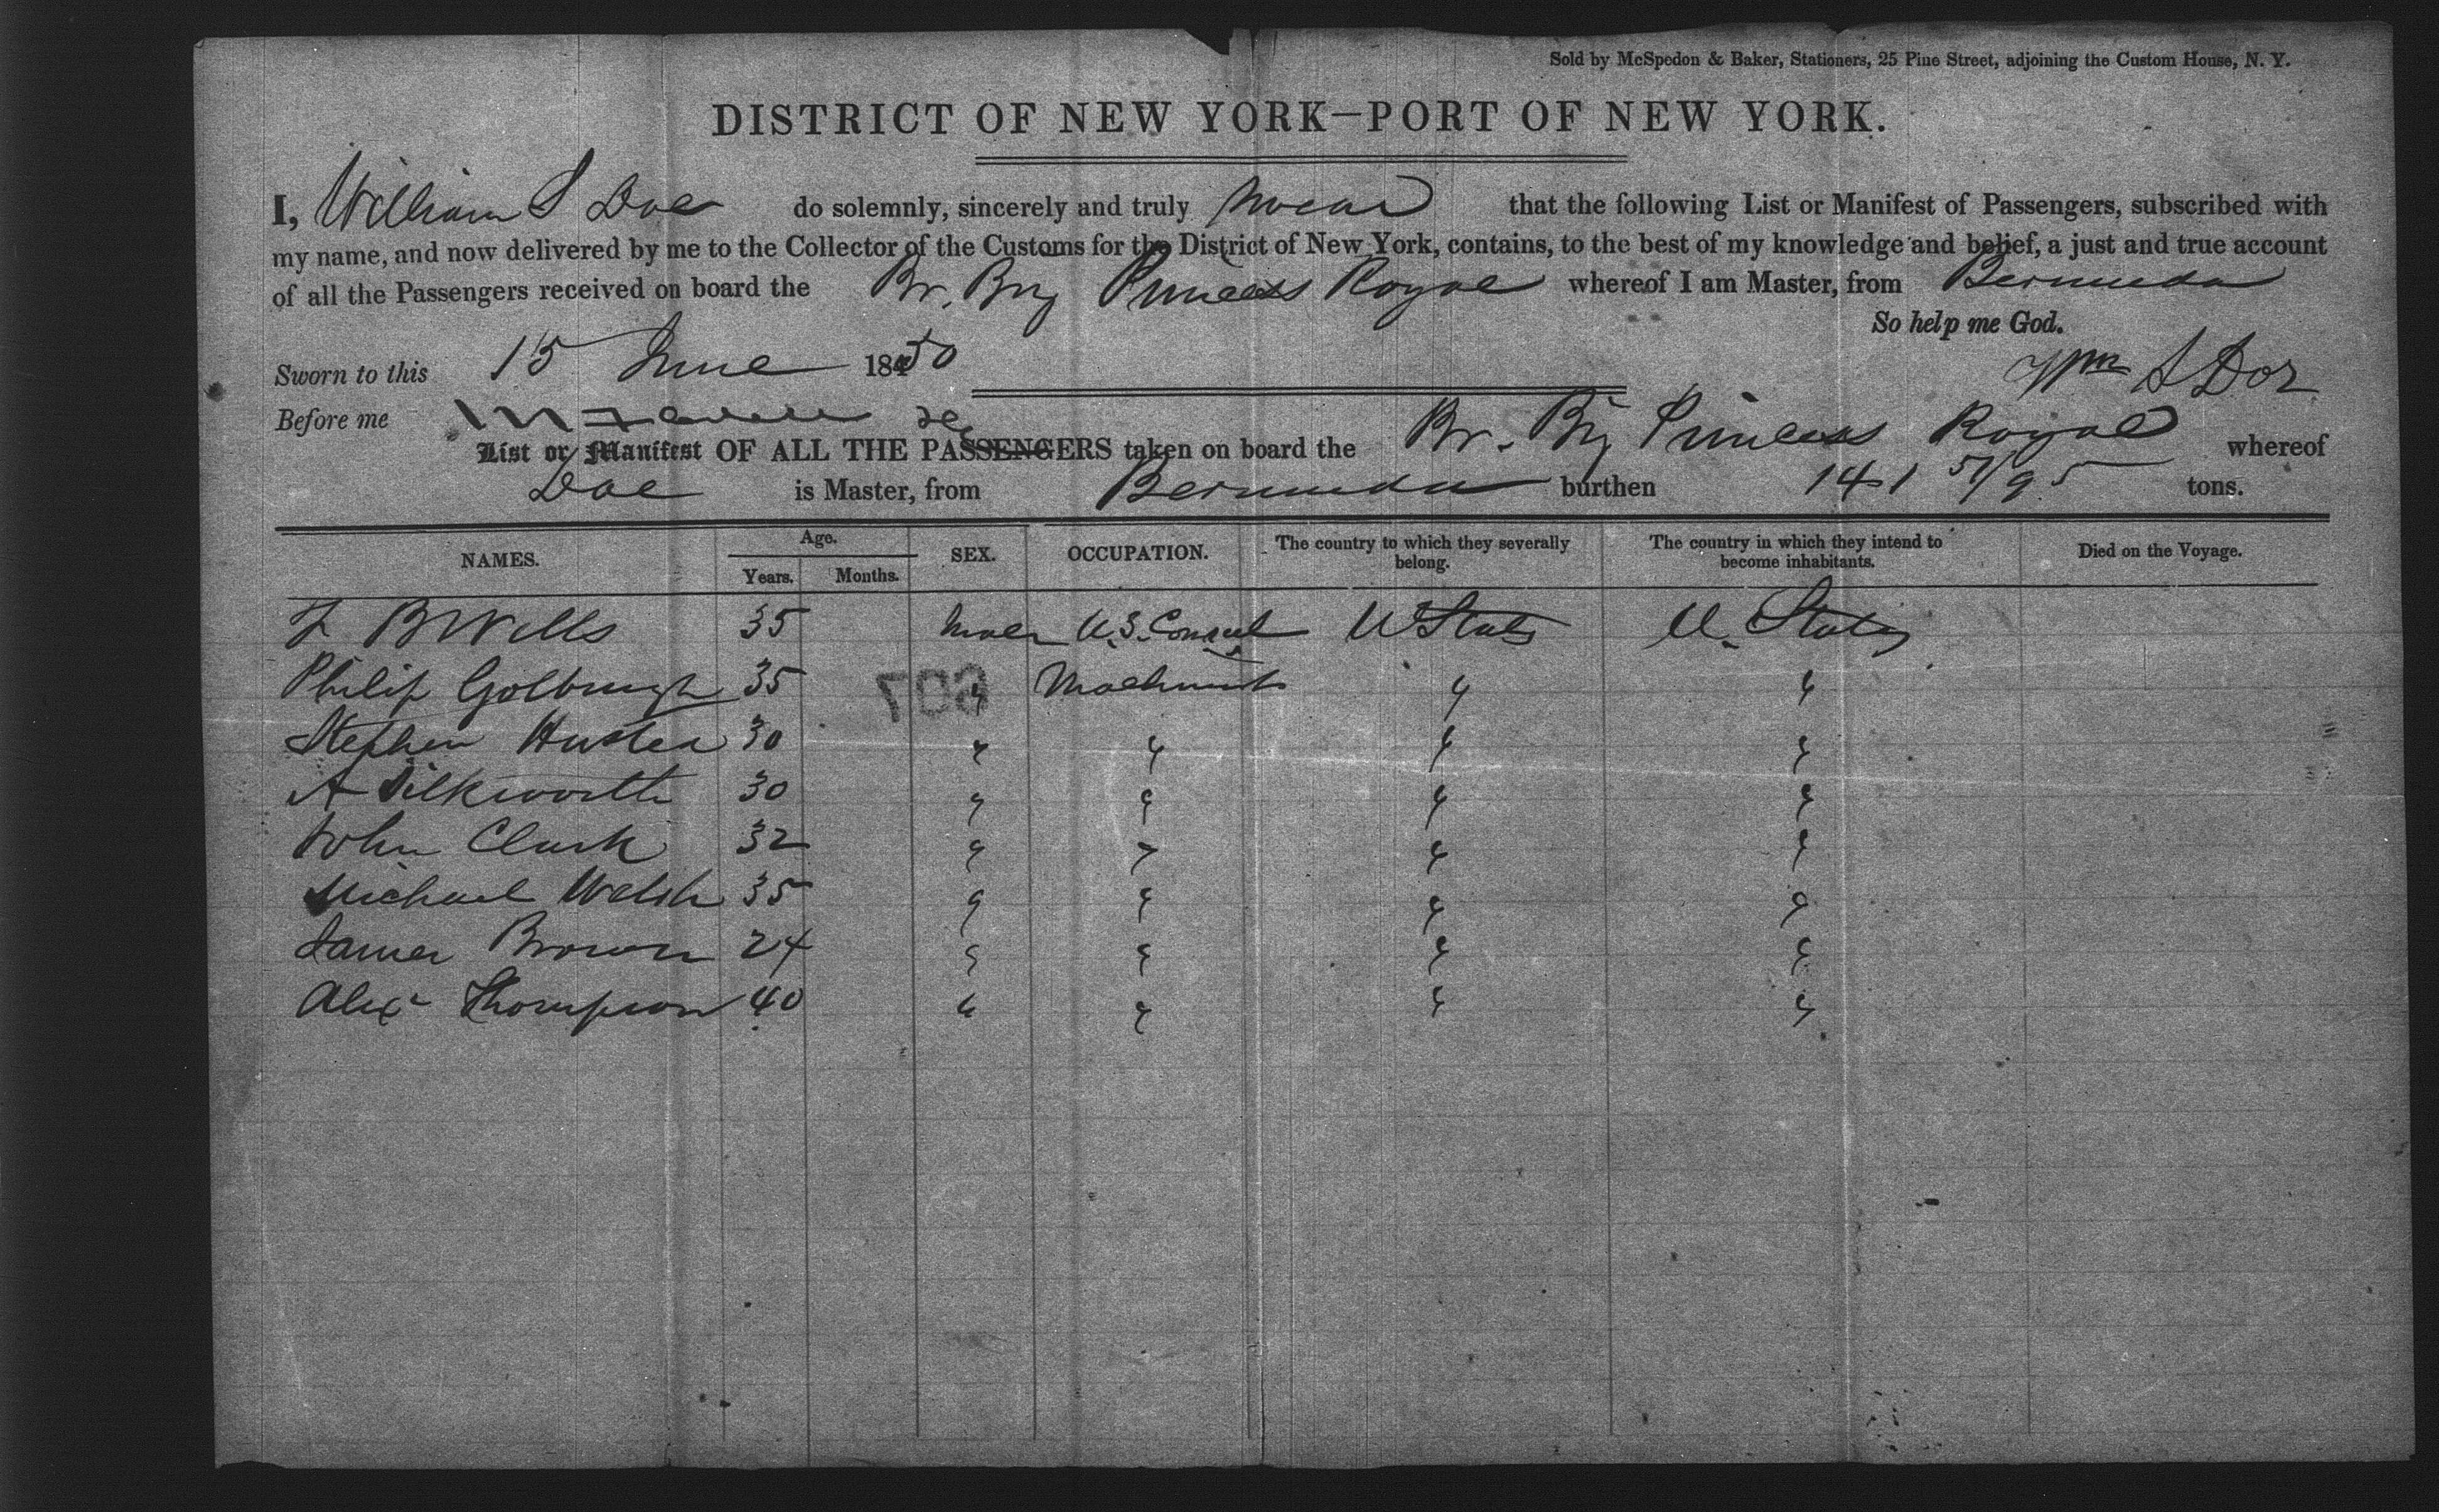 Sold by McSpedon & Baker, Stationers, 25 Pine Street, adjoining the Custom House, N. Y.
DISTRICT OF NEW YORK—PORT OF NEW YORK.
I, William S Doe do solemnly, sincerely and truly swear that the following List or Manifest of Passengers, subscribed with
my name, and now delivered by me to the Collector of the Customs for the District of New York, contains, to the best of my knowledge and belief, a just and true account
of all the Passengers received on board the Br. Brig Princess Royal whereof I am Master, from Bermuda
So help me God.
Sworn to this 15 June 1850
Wm S Doe
Before me
List or Manifest OF ALL THE PASSENGERS taken on board the Br. Brig Princess Royal whereof
Doe is Master, from Bermuda burthen 141 51/95 tons.
NAMES. Age. Years. Months. SEX. OCCUPATION. The country to which they severally belong. The country in which they intend to become inhabitants. Died on the Voyage.
B Wells 35 Male U.S. Consul U States U. States
Philip 35 " " "
Stephen 30 " " " "
A Silkworth 30 " " " "
John Clark 32 " " " "
Michael Welsh 35 " " " "
James Brown 24 " " " "
Alex Thompson 40 " " " "